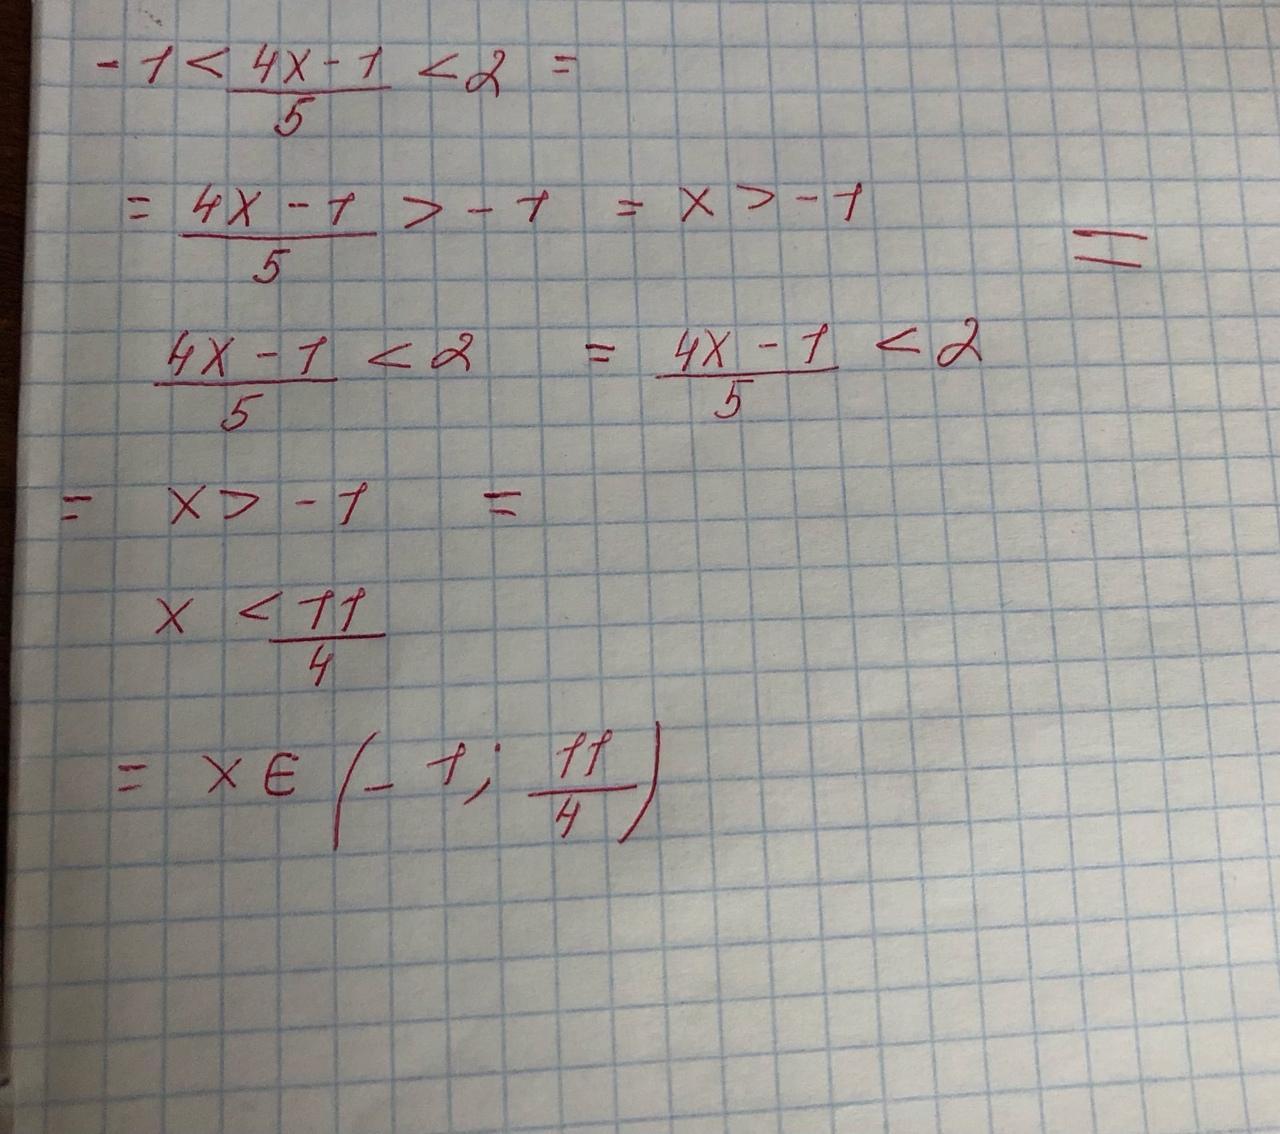 -1 < (4x-1)/5 < 2 =
= (4x-1)/5 > -1 = x > -1 =
(4x-1)/5 < 2 = (4x-1)/5 < 2
= x > -1 =
x < 11/4
= x ∈ (-1; 11/4)